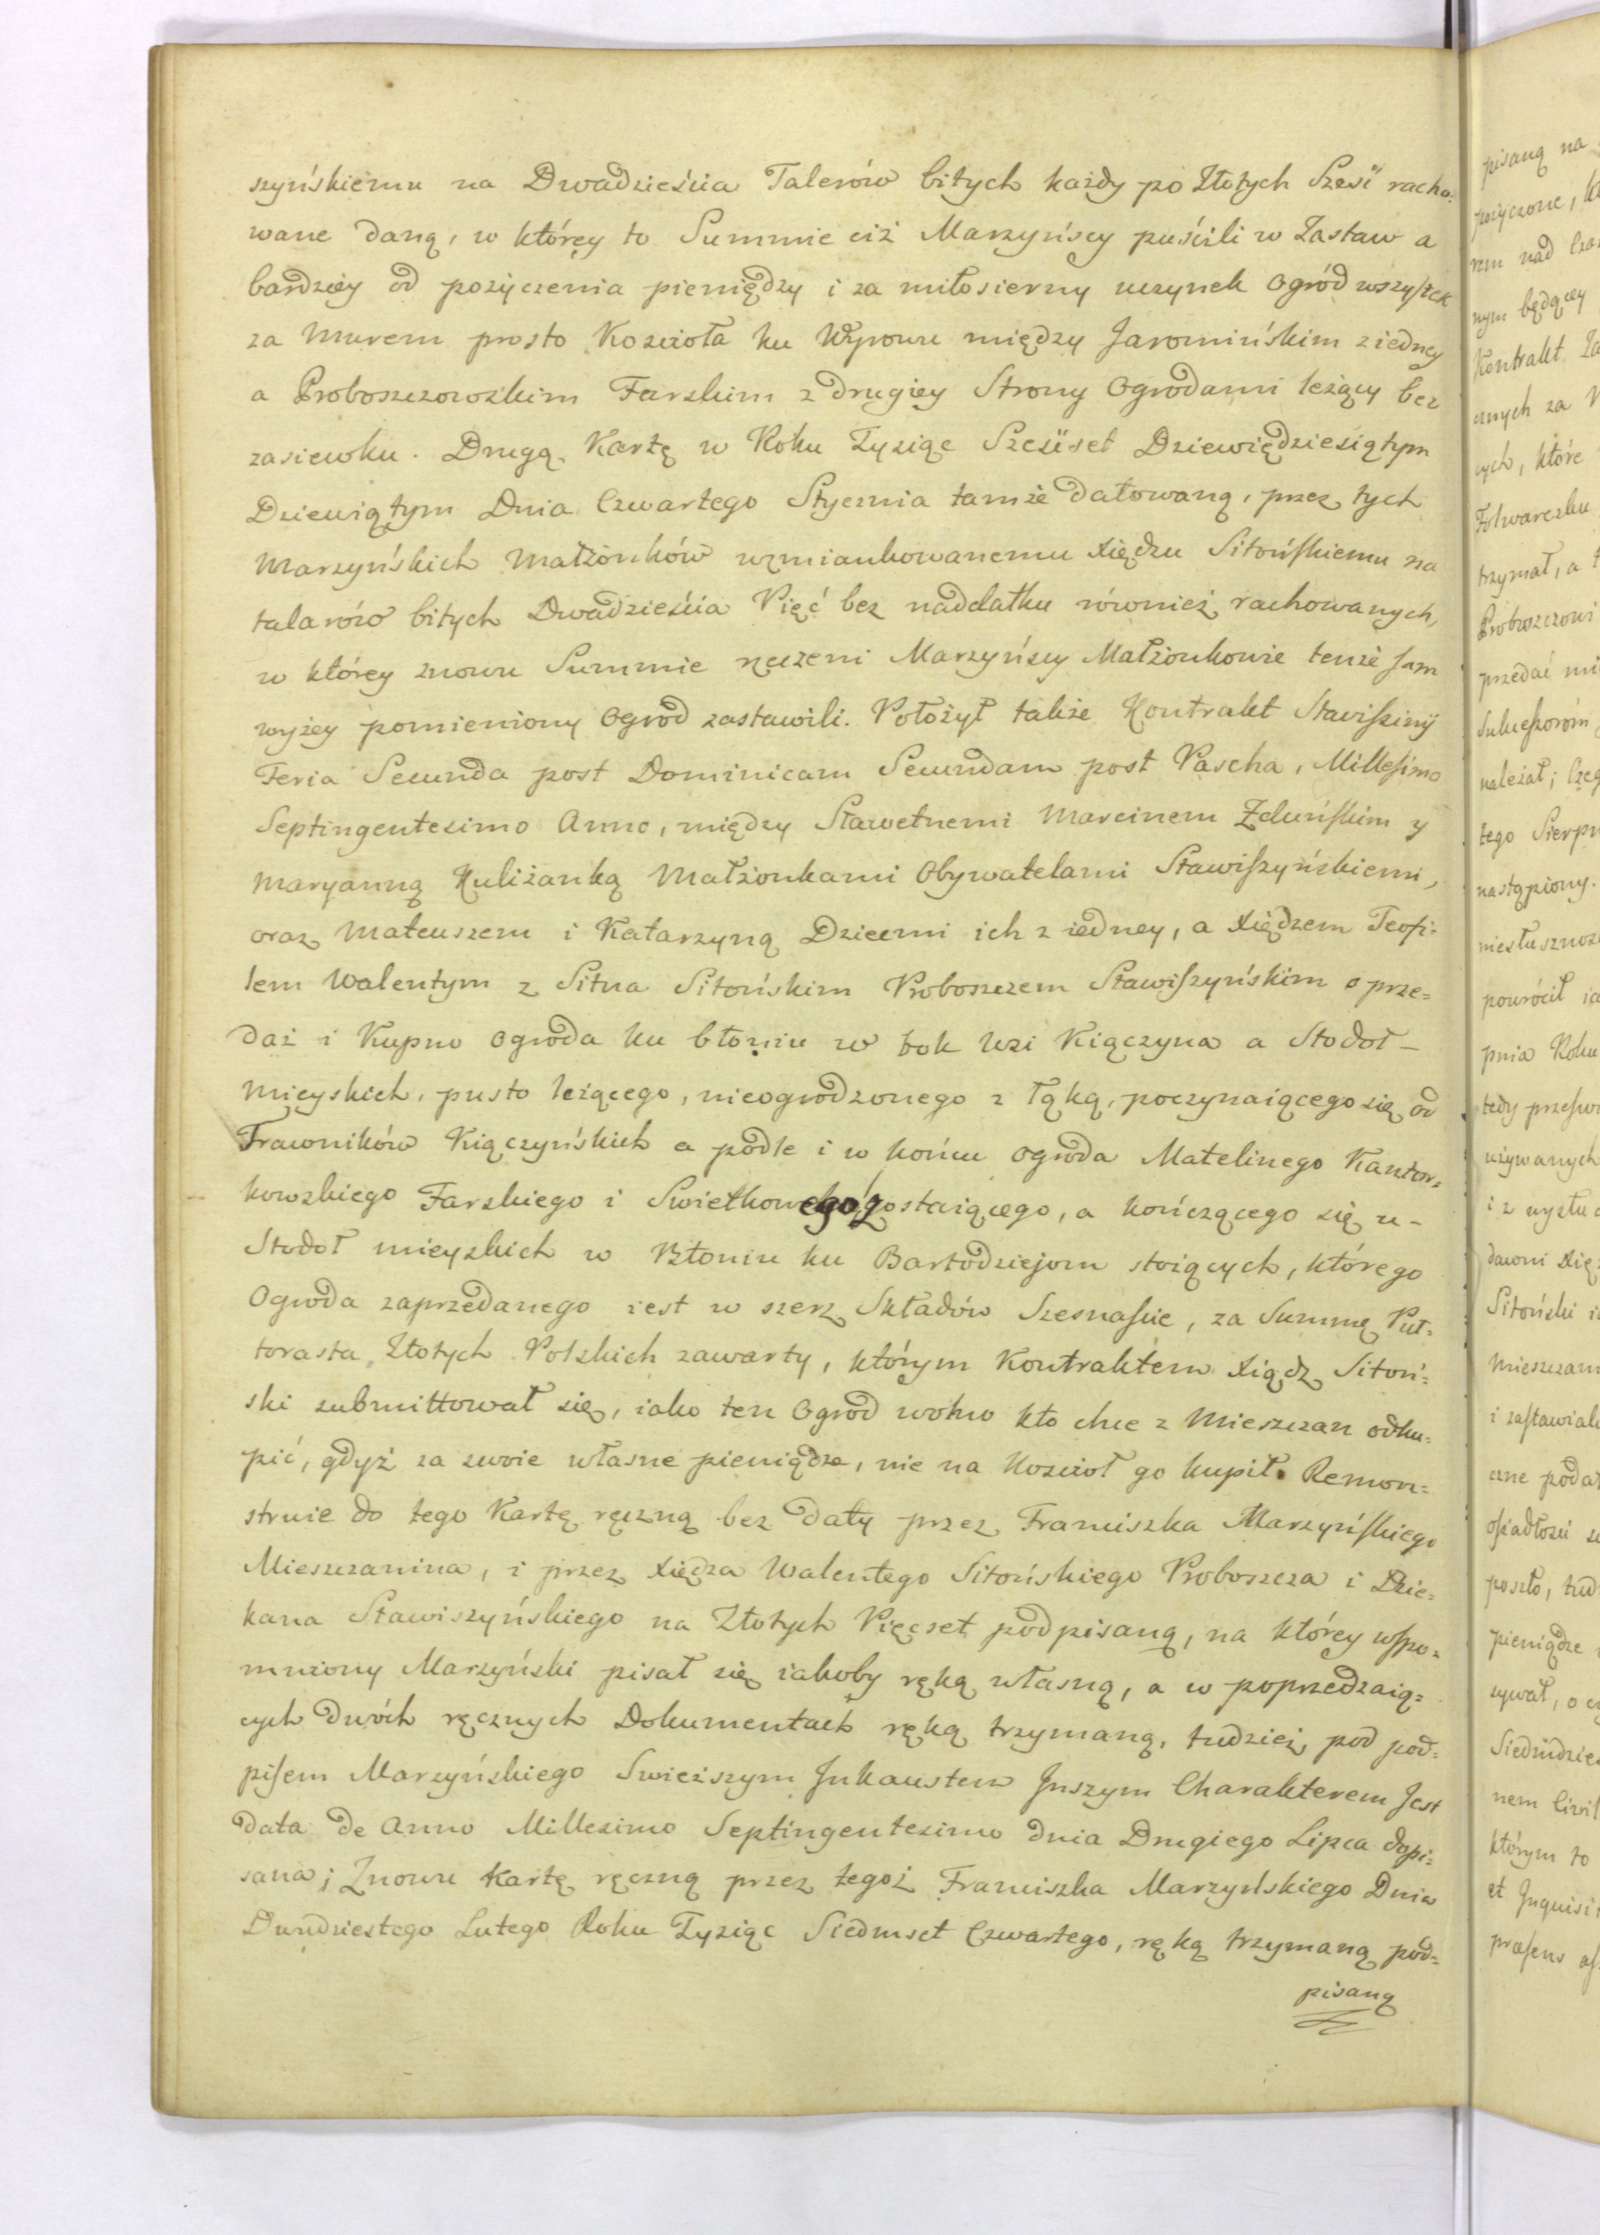 szyńskiemu na Dwadzieścia Talerów bitych każdy po Złotych Sześć racho-
wane daną, w którey to Summie ciż Marzyńscy puścili w Zastaw a
bardziey od pożyczenia pieniędzy i za miłosierny uczynek Ogród wszystek
za Murem prosto Kościoła ku Wyrowu między Jaromińskim z iedney
a Proboszczowskim Farskim z drugiey Strony Ogrodami leżący bez
zasiewku. Drugą Kartę w Roku Tysiąc Sześćset Dziewiędziesiątym
Dziewiątym Dnia Czwartego Stycznia tamże datowaną, przez tych
Marzyńskich Małżonków wzmiankowanemu Xiędzu Sitońskiemu na
talarów bitych Dwadzieścia Pięć bez naddatku również rachowanych,
w którey znowu Summie rzeczeni Marzyńscy Małżonkowie tenże sam
wyżey pomieniony Ogrod zastawili. Położył także Kontrakt Stawiszinÿ
Feria Secunda post Dominicam Secundam post Pascha, Millesimo
Septingentesimo Anno, między Sławetnemi Marcinem Zduńskim y
Maryanną Kuliżanką Małżonkami Obywatelami Stawiszyńskiemi,
oraz Mateuszem i Katarzyną Dziećmi ich z iedney, a Xiędzem Teofi-
lem Walentym z Sitna Sitońskim Proboszczem Stawiszyńskim o prze=
daż i Kupno Ogroda ku błoniu w bok Wsi Kiączyna a Stodoł -
Mieyskich, pusto leżącego, nieogrodzonego z Łąką, poczynaiącego się od
Trawników Kiączyńskich a podle i w końcu Ogroda Matelinego Kantor=
kowskiego Farskiego i zostaiącego, a kończącego się u -
Stodoł mieyskich w Błoniu ku Bartodziejom stoiących, którego
Ogroda zaprzedanego iest w szerz Składów Szesnaście, za Summę Puł=
torasta Złotych Polskich zawarty, którym Kontraktem Xiądz Sitoń=
ski submittował się, iako ten Ogrod wolno kto chce z Mieszczan odku=
pić, gdyż za swoie własne pieniądze, nie na Kościoł go kupił. Remon=
struie do tego Kartę ręczną bez daty przez Franciszka Marzyńskiego
Mieszczanina, i przez Xiędza Walentego Sitońskiego Proboszcza i Dzie=
kana Stawiszyńskiego na Złotych Pięćset podpisaną, na którey wspo=
mniony Marzyński pisał się iakoby ręką własną, a w poprzedzaią=
cych dwóch ręcznych Dokumentach ręką trzymaną, tudzież pod pod=
pisem Marzyńskiego Swieższym Inkaustem Inszym Charakterem Jest
data de Anno Millesimo Septingentesimo dnia Drugiego Lipca dopi=
sana; Znowu Kartę ręczną przez tegoż Franciszka Marzyńskiego Dnia
Dwudziestego Lutego Roku Tysiąc Siedmset Czwartego, ręką trzymaną pod=
pisaną
pisaną na
pożyczone,
rem nad
nym będącey
Kontrakt
cznych za
ych, które
Folwarczku
trzymał, a
Proboszczowi
przedać
Sukcessorom
należał;
tego Sierpn
nastąpiony.
niesłuszno
powrócił
pnia Roku
tedy
używanych
i z
dawni
Sitoński
Mieszczan
i zastawial
czne
osiadłości
poszło,
pieniądze
nem Civil
którym to
et Inquisi
præsens